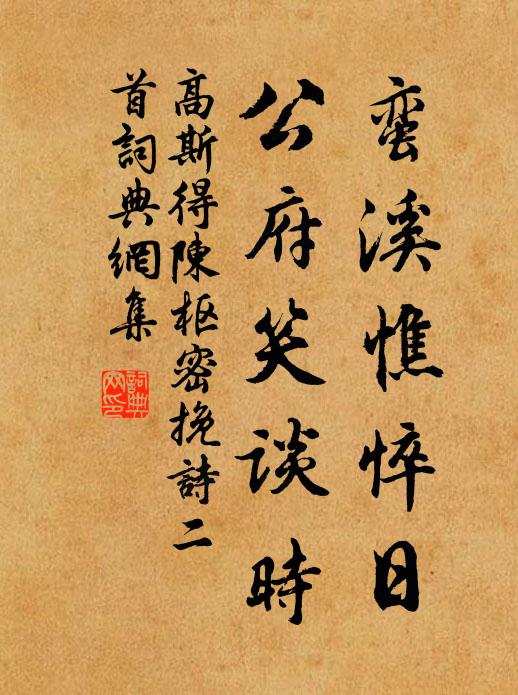 蛮溪憔悴日
公府笑談時
高斯得陳枢密挽詩二
首詞典網集
詞典
网印